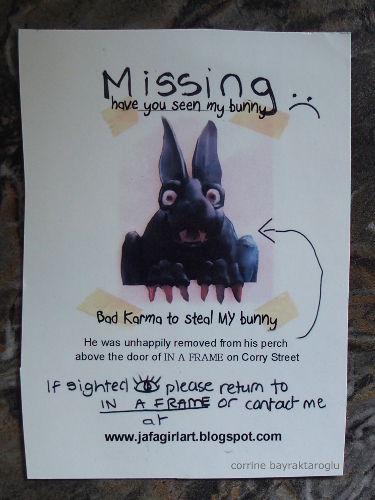 Missing
have you seen my bunny
Bad Karma to steal MY bunny
He was unhappily removed from his perch
above the door of IN A FRAME on Corry Street
If sighted please return to
IN A FRAME or contact me
at
www.jafagirlart.blogspot.com
corrine bayraktaroglu